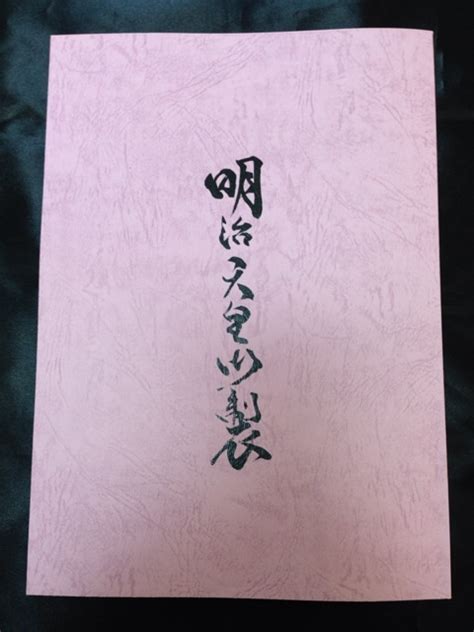 明治天皇御製